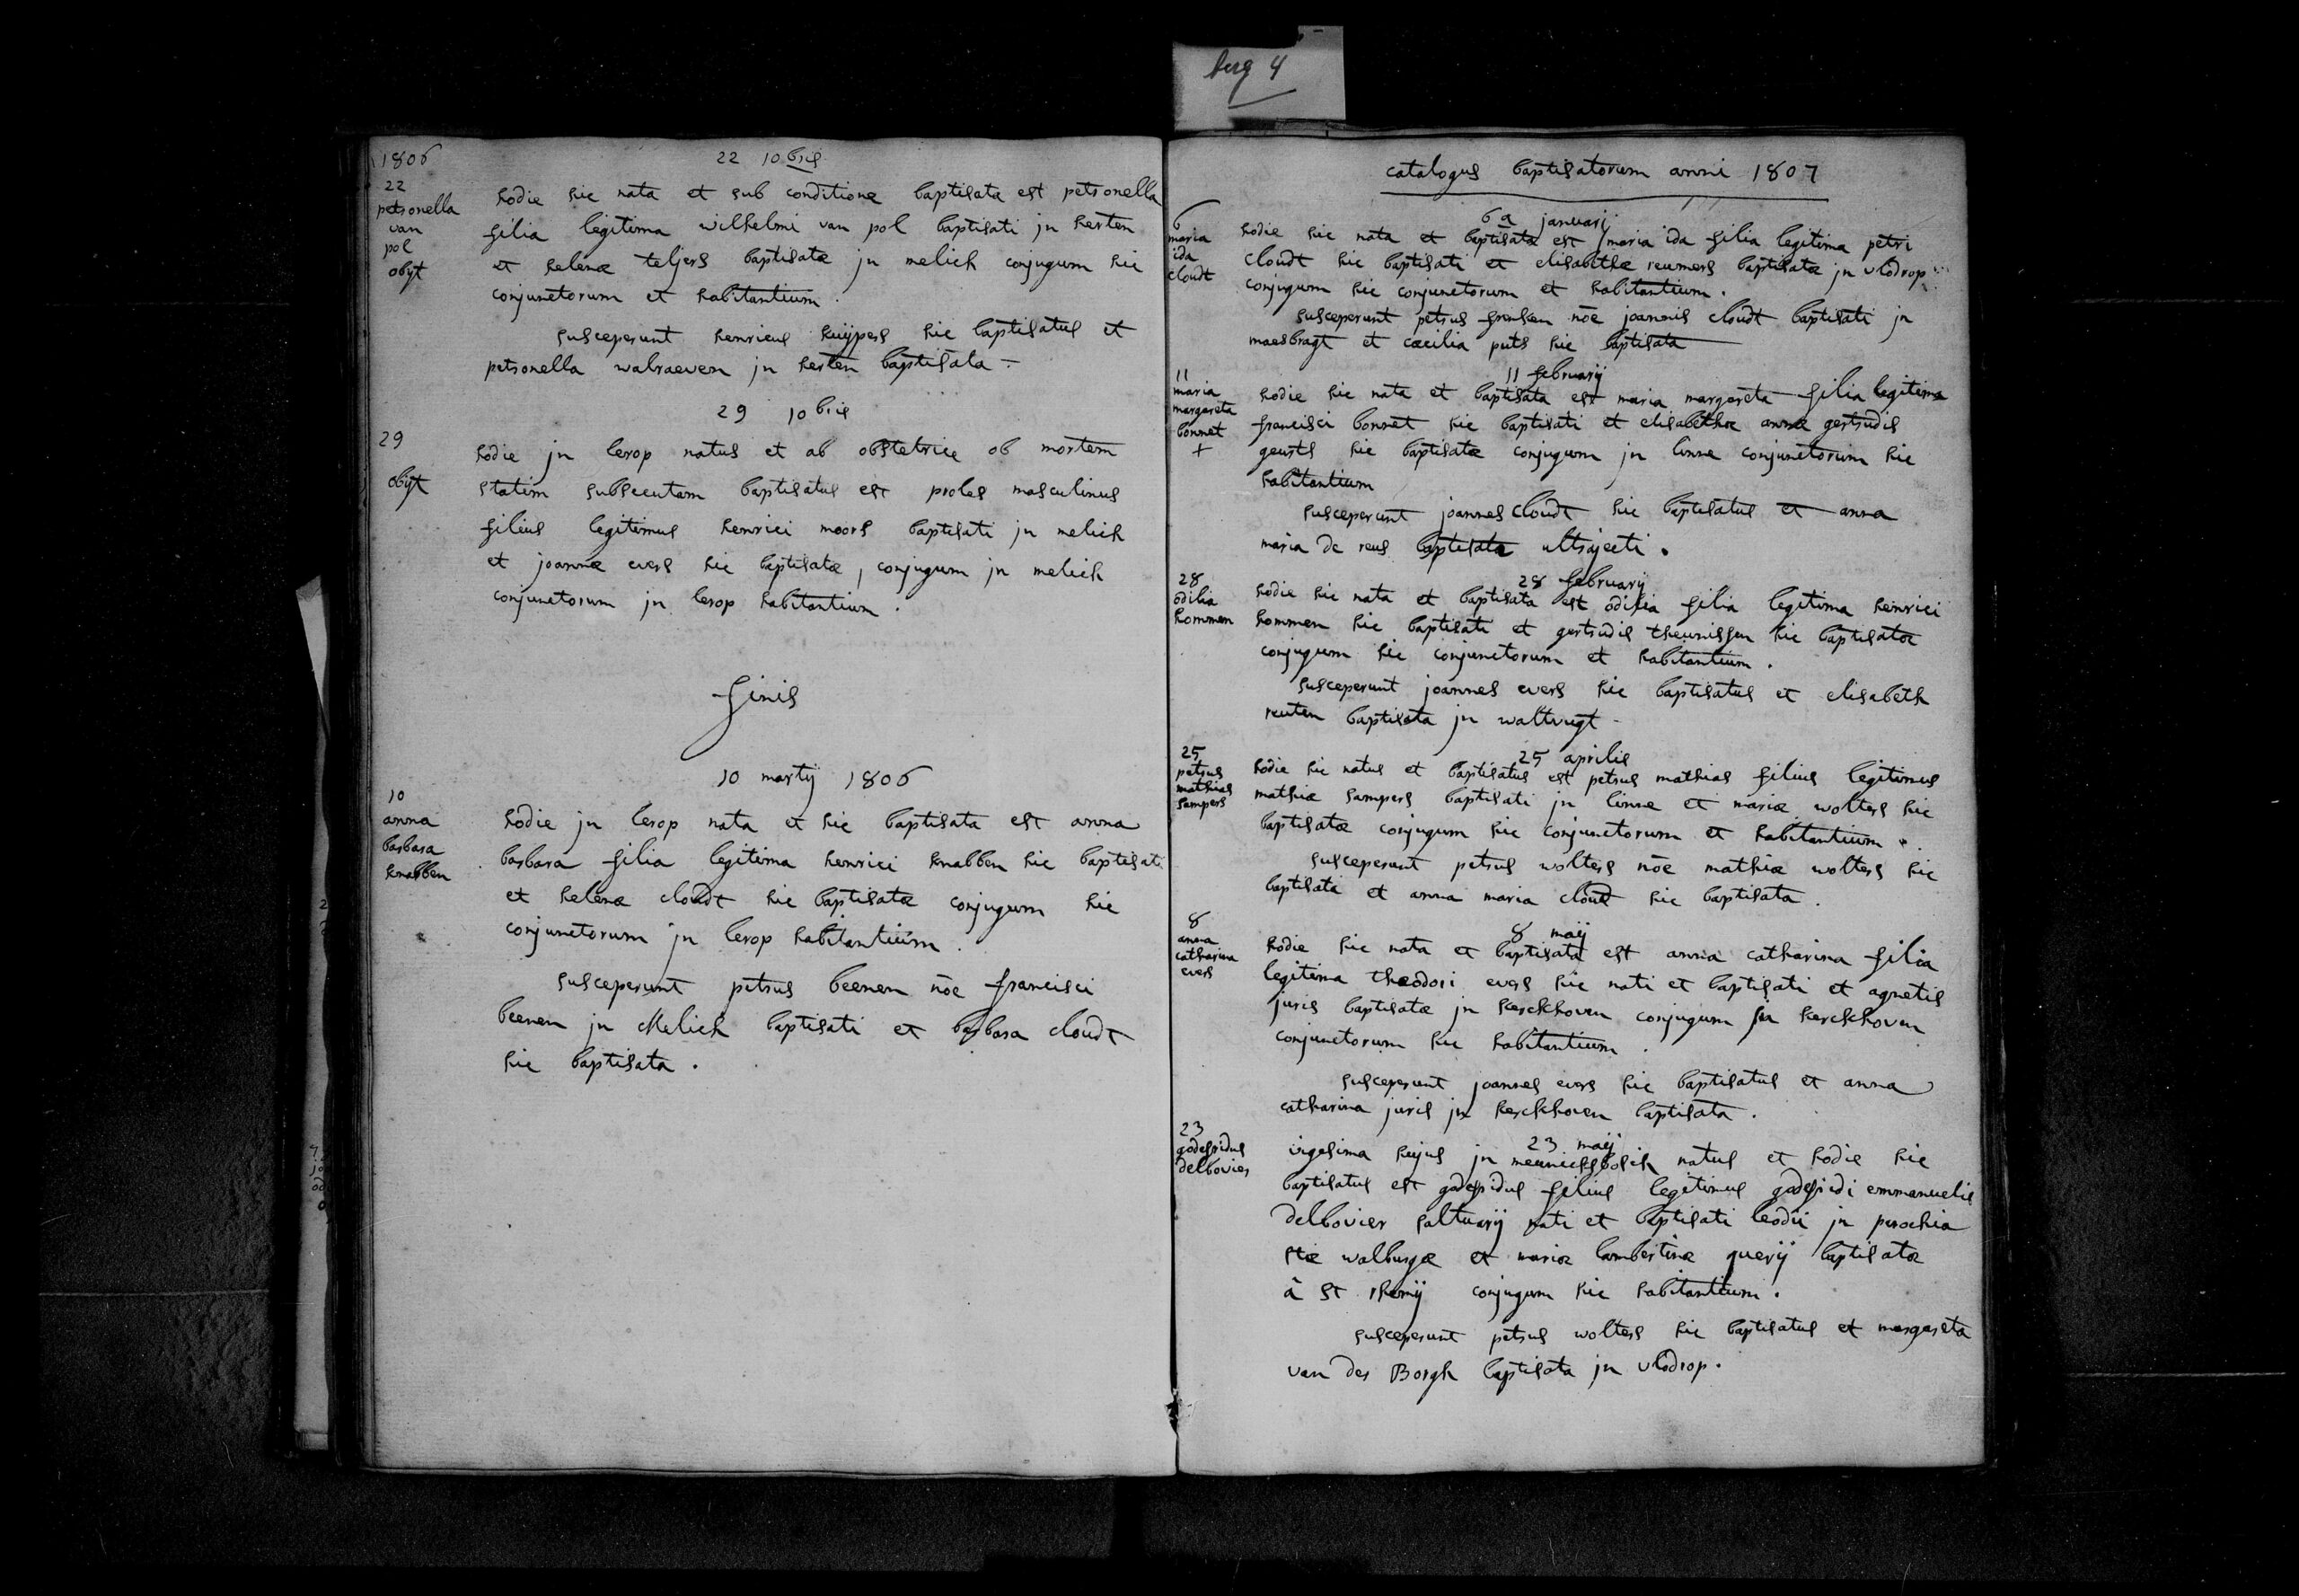 berg 4
1806
22 10bris
22
petronella
van
pol
obyt
hodie hic nata et sub conditione baptisata est petronella
filia legitima wilhelmi van pol baptisati jn herten
et helenæ teljers baptisatæ jn melich conjugum hic
conjunctorum et habitantium.
susceperunt henricus kuijpers hic baptisatus et
petronella walraeven jn herten baptisata -
29 10bris
29
obyt
hodie jn lerop natus et ab obstetrice ob mortem
statim subsecutam baptisatus est proles masculinus
filius legitimus henrici moors baptisati jn melich
et joannæ evers hic baptisatæ, conjugum jn melich
conjunctorum jn lerop habitantium.
finis
10 martij 1806
10
anna
barbara
knabben
hodie jn lerop nata et hic baptisata est anna
barbara filia legitima henrici knabben hic baptisati
et helenæ cloudt hic baptisatæ conjugum hic
conjunctorum jn lerop habitantium.
susceperunt petrus beenen nōe francisci
beenen jn Melich baptisati et barbara cloudt
hic baptisata.
catalogus baptisatorum anni 1807
6a januarij
6
maria
ida
cloudt
hodie hic nata et baptisata est maria ida filia legitima petri
cloudt hic baptisati et elisabethæ reumers baptisatæ jn vlodrop
conjugum hic conjunctorum et habitantium.
susceperunt petrus fransen nōe joannis cloudt baptisati jn
maesbragt et cæcilia puts hic baptisata
11 februarij
11
maria
margareta
bonnet
+
hodie hic nata et baptisata est maria margareta filia legitima
francisci bonnet hic baptisati et elisabethæ annæ gertrudis
geurts hic baptisatæ conjugum jn linne conjunctorum hic
habitantium
susceperunt joannes cloudt hic baptisatus et anna
maria de reus baptisata ultrajecti.
28 februarij
28
odilia
hommen
hodie hic nata et baptisata est odilia filia legitima henrici
hommen hic baptisati et gertrudis theunissen hic baptisatæ
conjugum hic conjunctorum et habitantium.
susceperunt joannes evers hic baptisatus et elisabeth
reuten baptisata jn waltrugt -
25 aprilis
25
petrus
mathias
sampers
hodie hic natus et baptisatus est petrus mathias filius legitimus
mathiæ sampers baptisati jn linne et mariæ wolters hic
baptisatæ conjugum hic conjunctorum et habitantium.
susceperunt petrus wolters nōe mathiæ wolters hic
baptisati et anna maria cloudt hic baptisata.
8 maij
8
anna
catharina
evers
hodie hic nata et baptisata est anna catharina filia
legitima theodori evers hic nati et baptisati et agnetis
juris baptisatæ jn kerckhoven conjugum jn kerckhoven
conjunctorum hic habitantium.
susceperunt joannes evers hic baptisatus et anna
catharina juris jn kerckhoven baptisata.
23 maij
23
godefridus
delbovier
vigesima hujus jn meuniekbosch natus et hodie hic
baptisatus est godefridus filius legitimus godefridi emmanuelis
delbovier saltuarij nati et baptisati leodii jn parochia
stæ walburgæ et mariæ lambertinæ querij baptisatæ
à st rhemij conjugum hic habitantium.
susceperunt petrus wolters hic baptisatus et margareta
van der Borgh baptisata jn vlodrop.